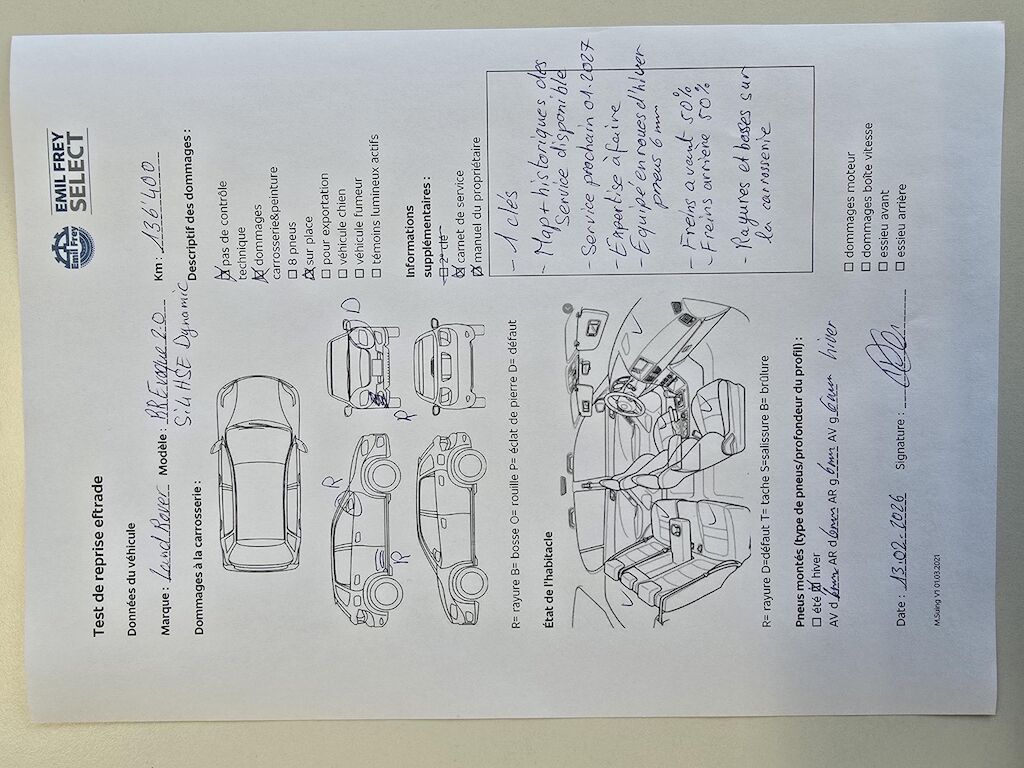 EMIL FREY
SELECT
Emil Frey
Test de reprise eftrade
Données du véhicule
Marque : Land Rover Modèle : RR Evoque 2.0 Km : 136'400
Si4 HSE Dynamic
Dommages à la carrosserie :
Descriptif des dommages :
☒ pas de contrôle
technique
☒ dommages
carrosserie&peinture
☐ 8 pneus
☒ sur place
☐ pour exportation
☐ véhicule chien
☐ véhicule fumeur
☐ témoins lumineux actifs
D
R
R
R
Informations
supplémentaires :
☐ 2e clé
☒ carnet de service
☒ manuel du propriétaire
R= rayure B= bosse O= rouille P= éclat de pierre D= défaut
État de l'habitacle
- 1 clés
- Map + historiques des
Service disponible
- Service prochain 01.2027
- Expertise à faire
- Equipé en roues d'hiver
pneus 6 mm
- Freins avant 50%
- Freins arriere 50%
- Rayures et bosses sur
la carrosserie
R= rayure D=défaut T= tache S=salissure B= brûlure
Pneus montés (type de pneus/profondeur du profil) :
☐ été ☒ hiver
AV d 6mm AR d 6mm AR g 6mm AV g 6mm hiver
☐ dommages moteur
☐ dommages boîte vitesse
☐ essieu avant
☐ essieu arrière
Date : 13.02.2026 Signature :
M.Suing V1 01.03.2021